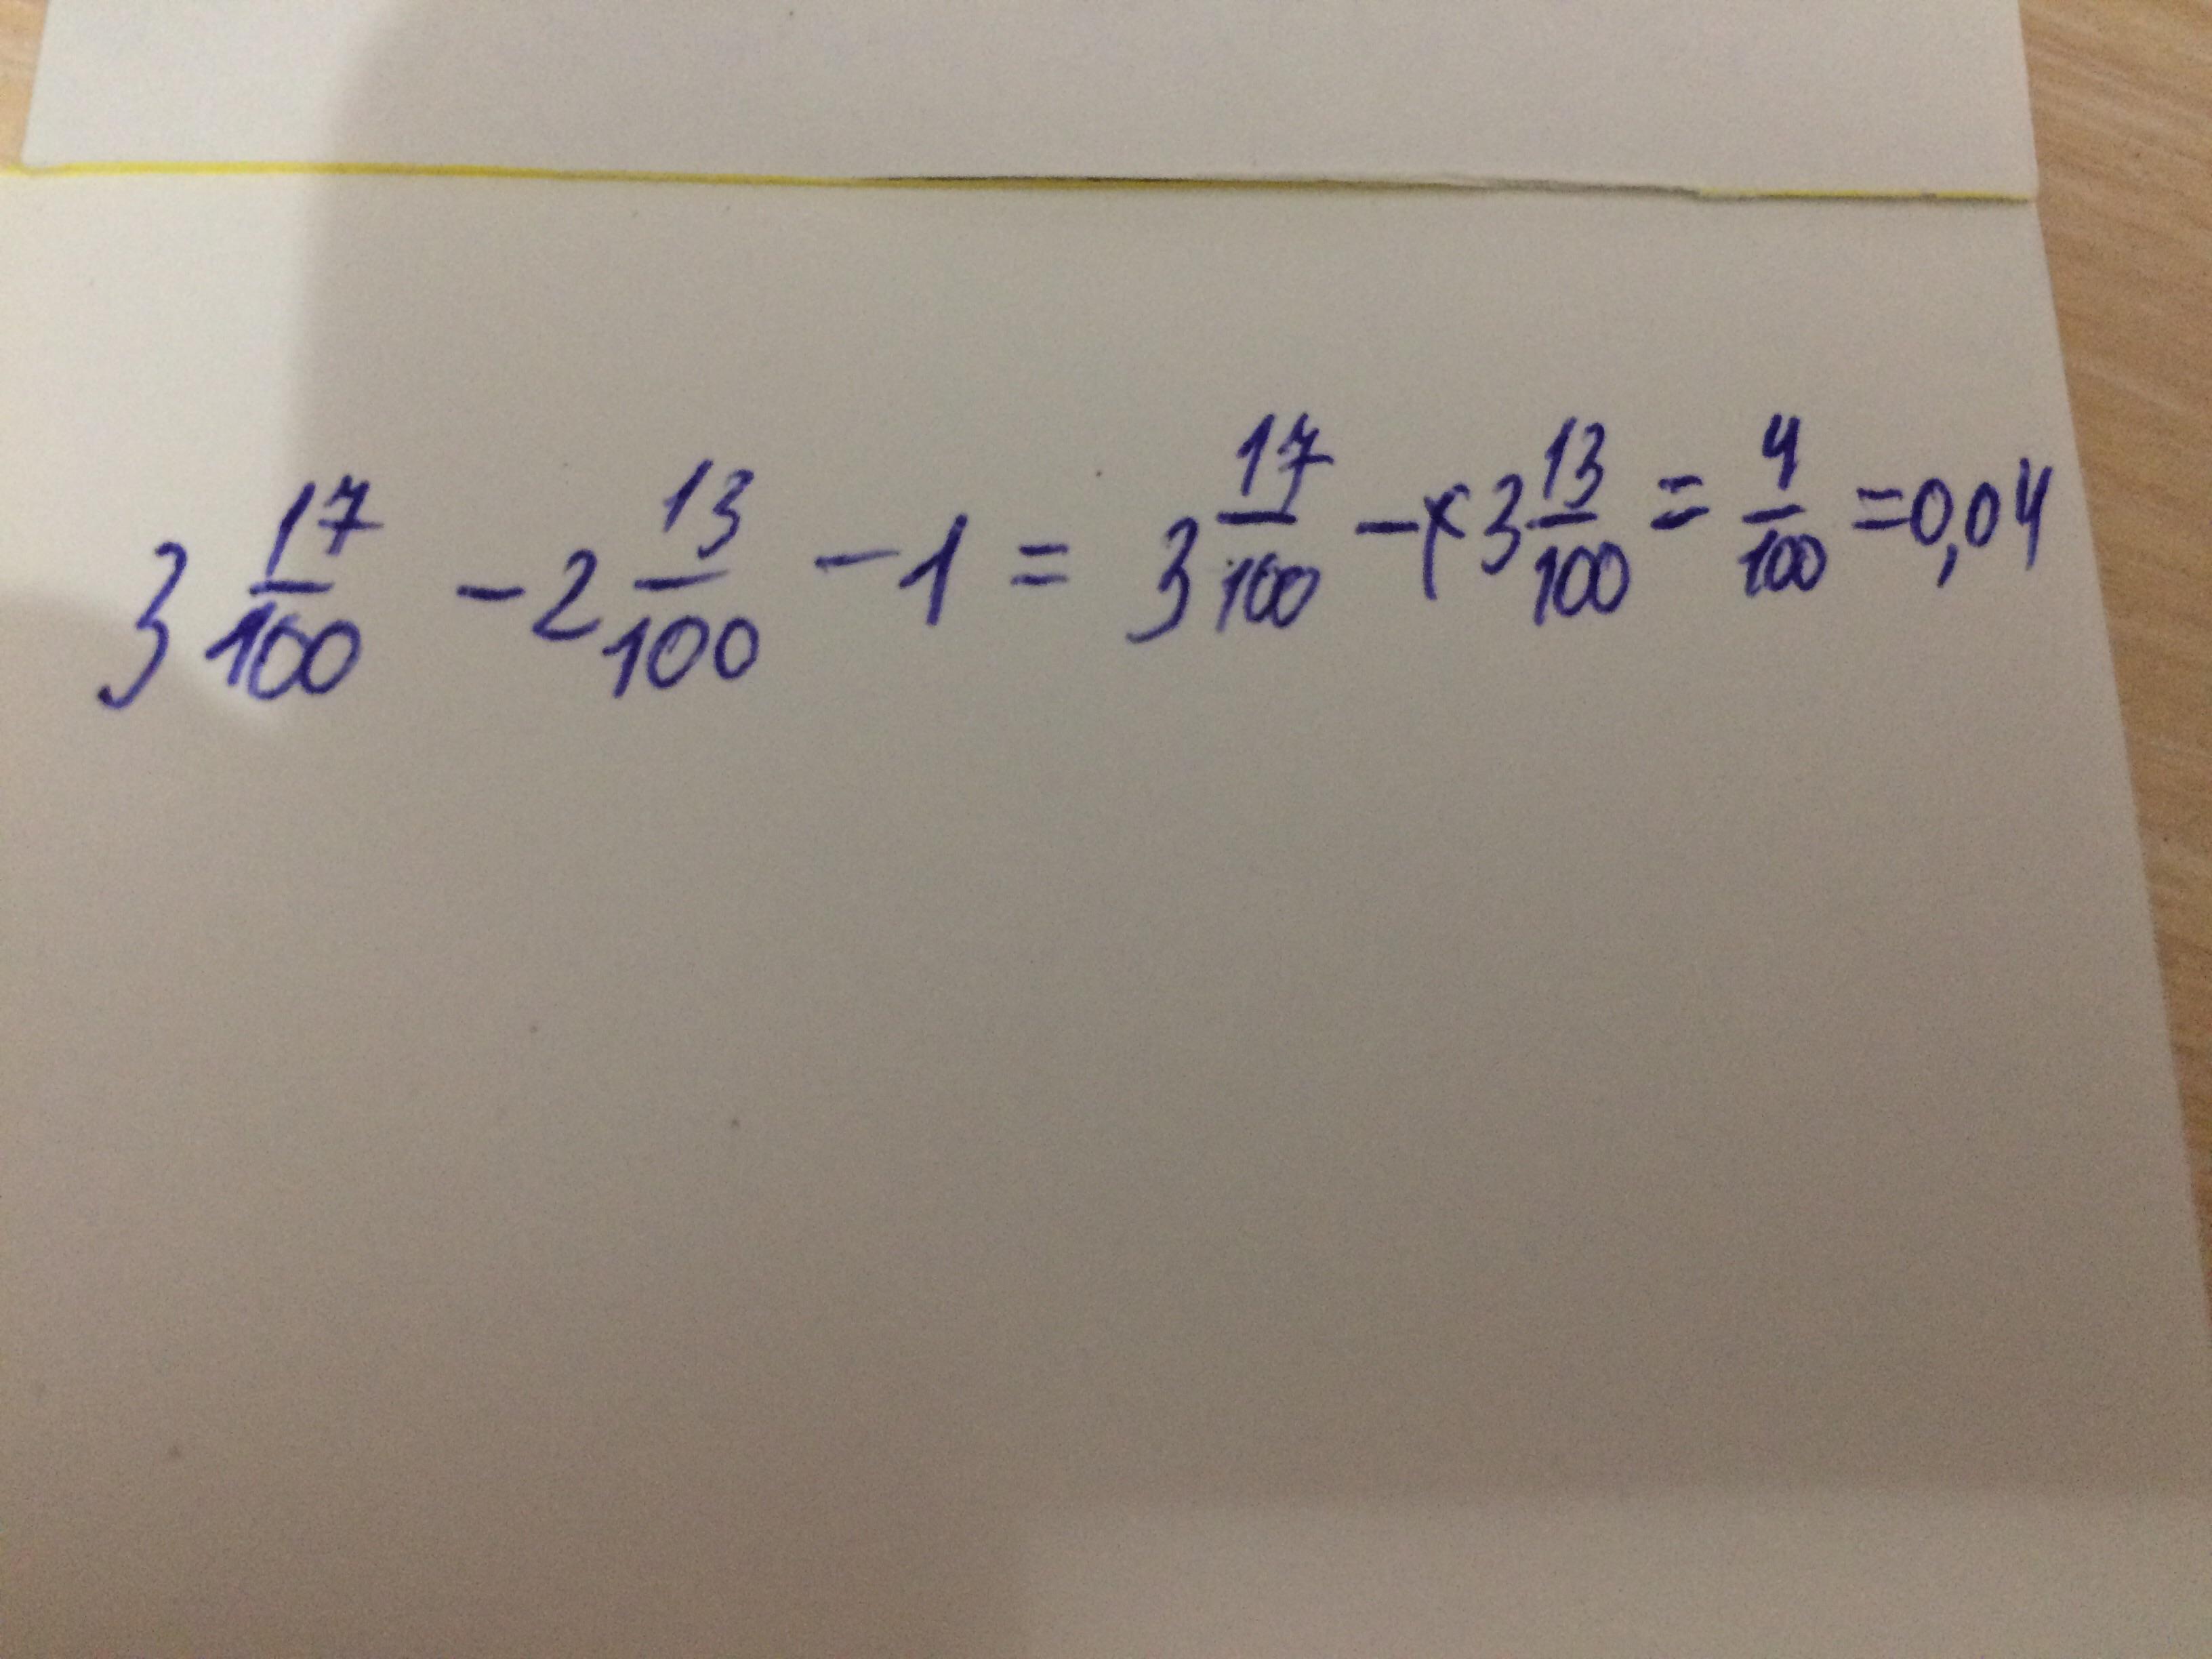 3 17/100 - 2 13/100 - 1 = 3 17/100 - 3 13/100 = 4/100 = 0,04